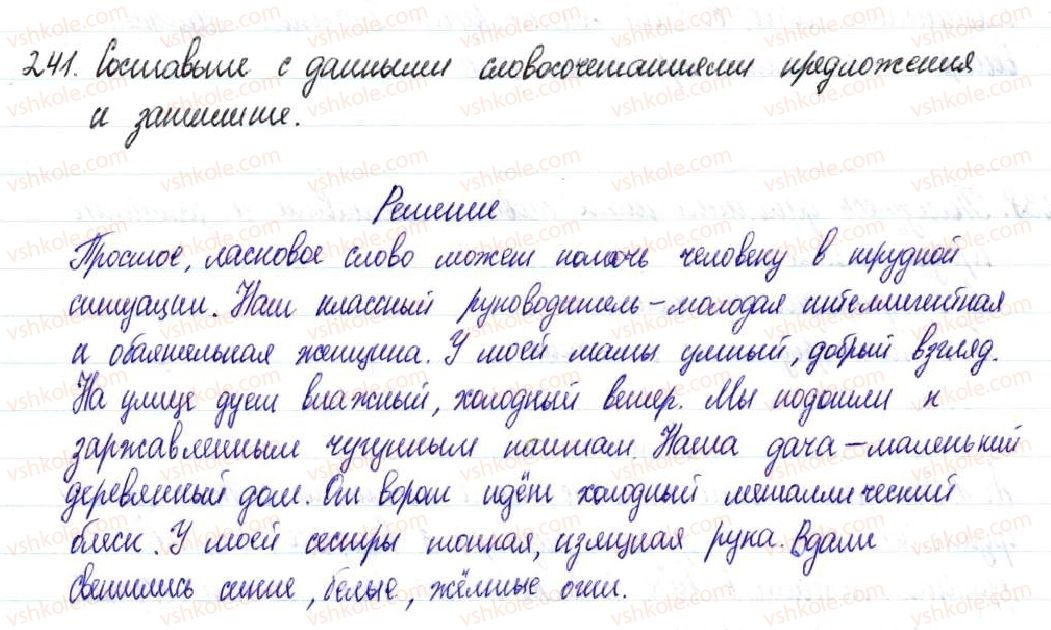 241. Составьте с данными словосочетаниями предложения
и запишите.
Решение
Простое, ласковое слово может помочь человеку в трудной
ситуации. Наш классный руководитель – молодая интеллигентная
и обаятельная женщина. У моей мамы умный, добрый взгляд.
На улице дует влажный, холодный ветер. Мы подошли к
заржавленным чугунным плитам. Наша дача – маленький
деревянный дом. От ворот идёт холодный металлический
блеск. У моей сестры тонкая, изящная рука. Вдали
светились синие, белые, жёлтые огни.
vshkole.com